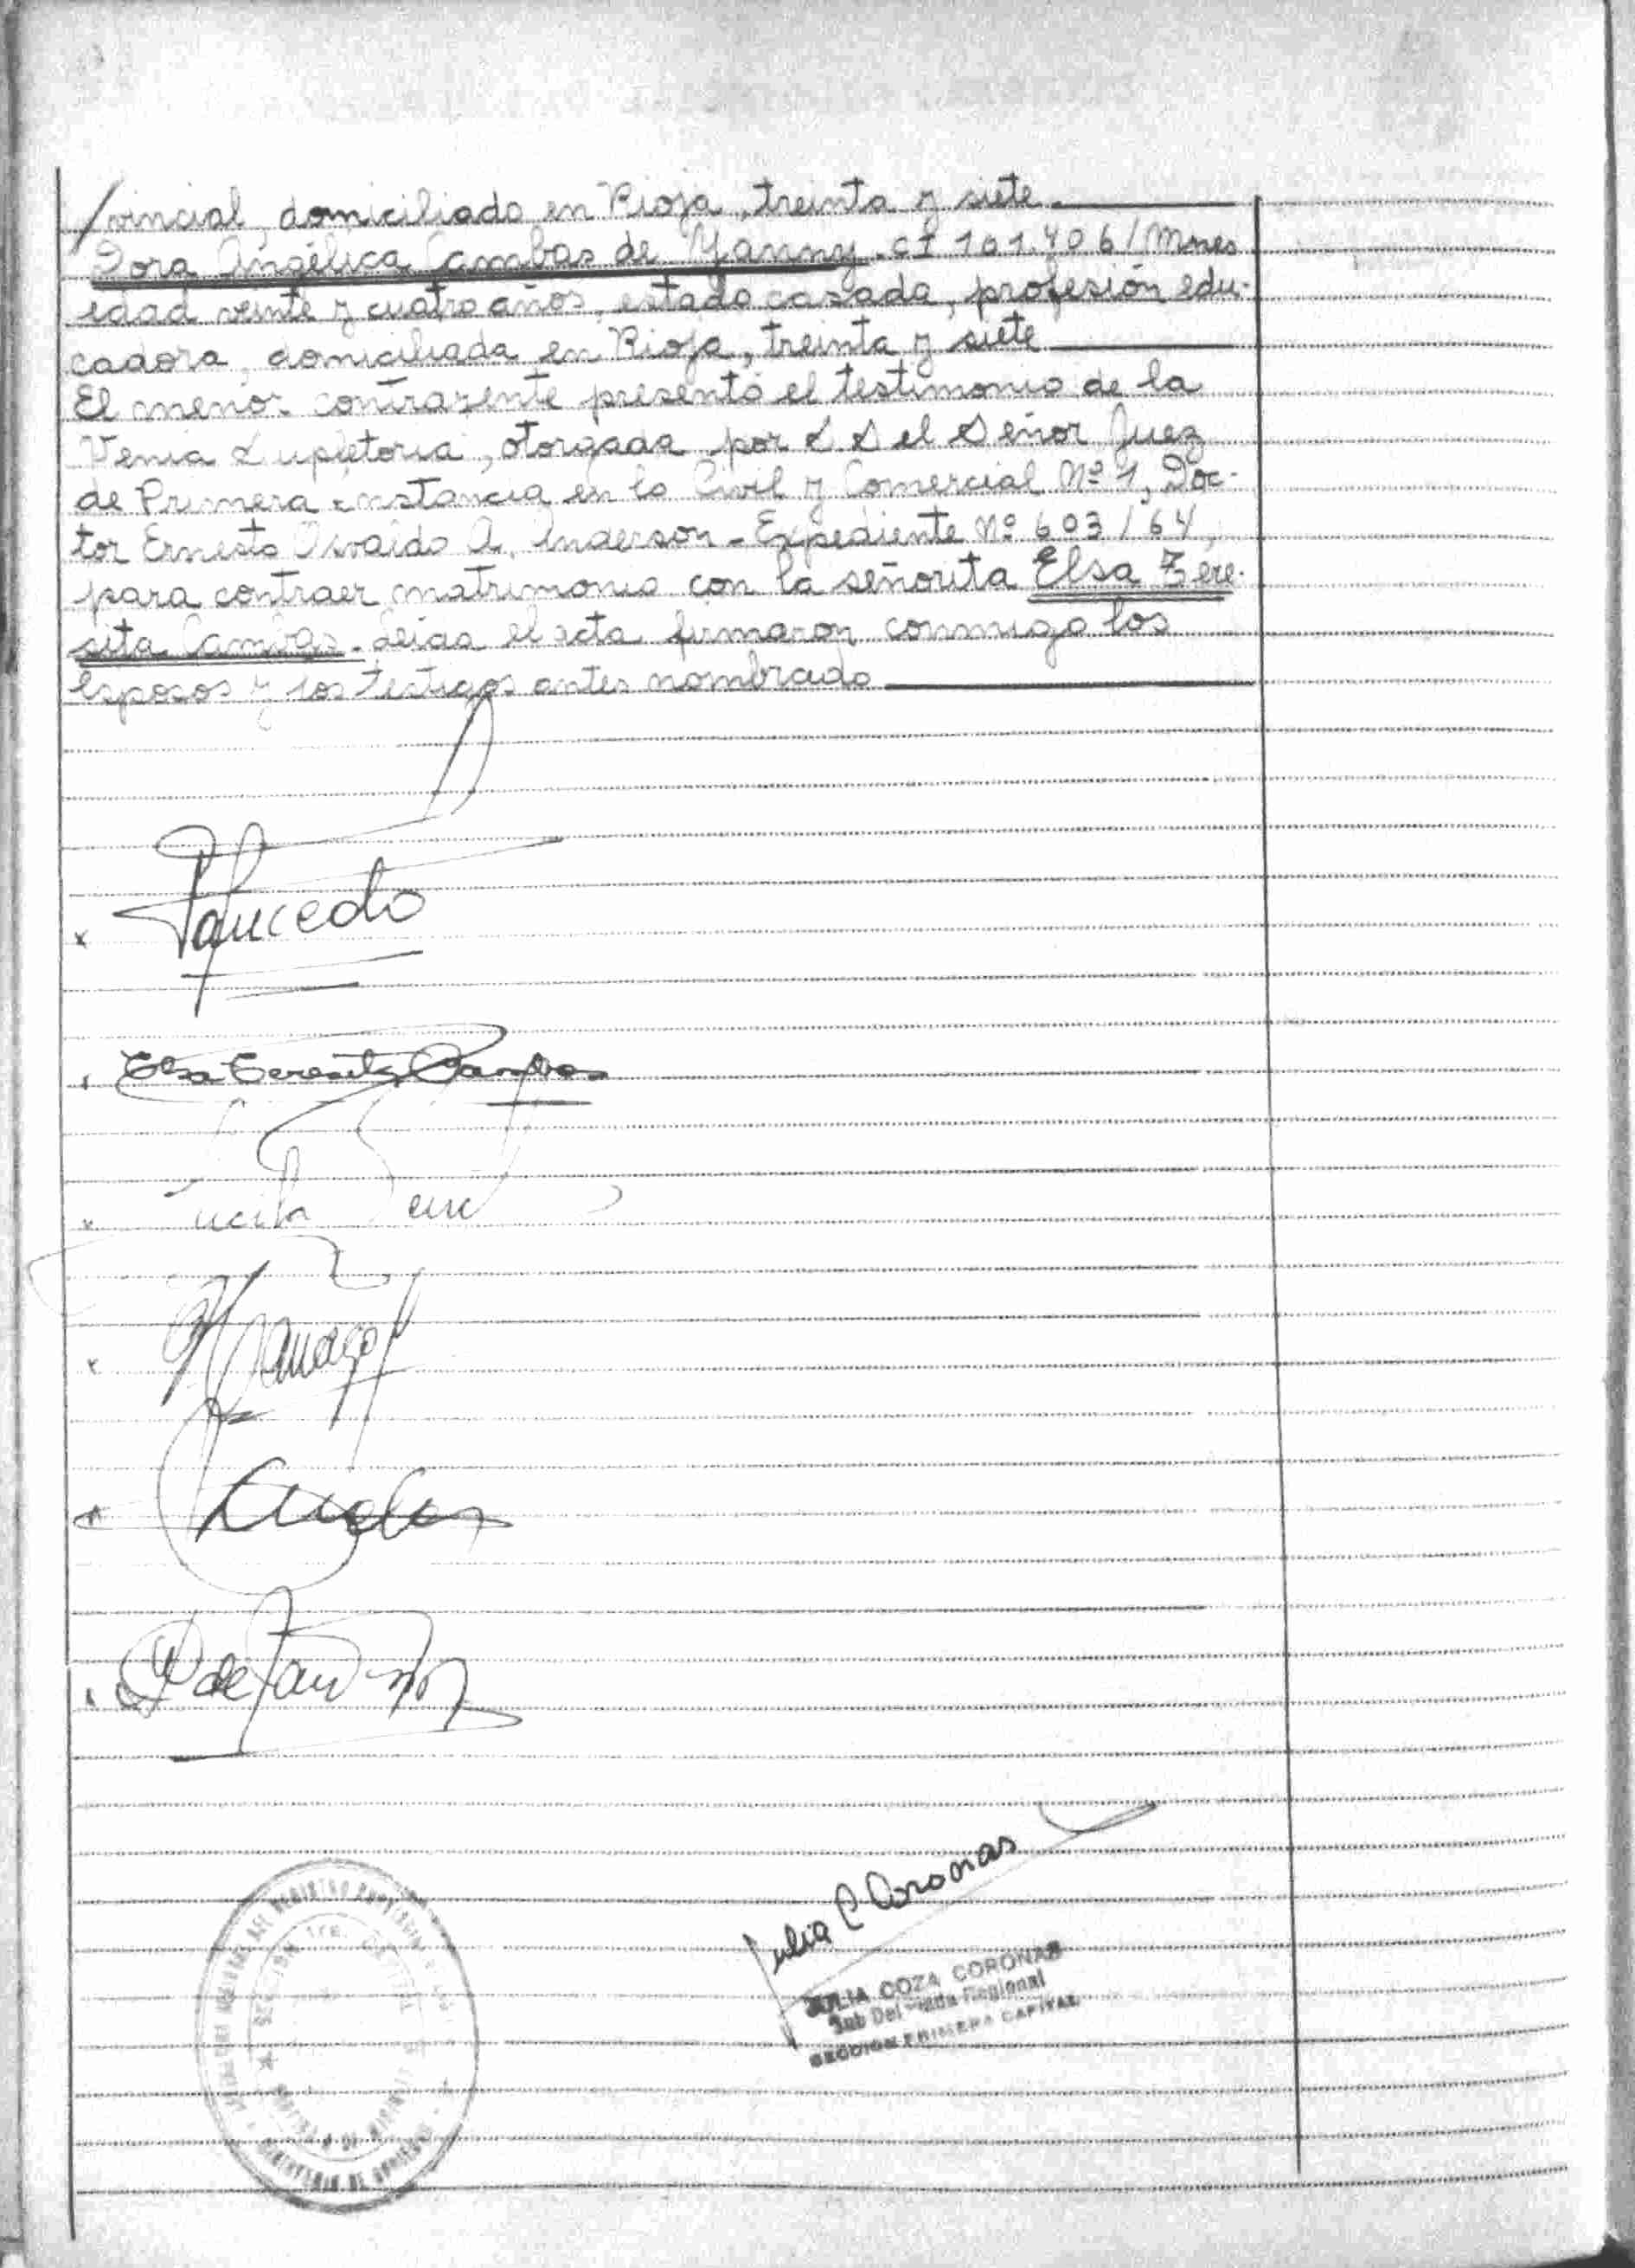 /vincial, domiciliado en Rioja, treinta y siete
Dora Angélica Cambas de Yanny. CI 161.406/Mnes
edad veinte y cuatro años, estado casada, profesión edu-
cadora, domiciliada en Rioja, treinta y siete
El menor contrayente presentó el testimonio de la
Venia Supletoria, otorgada por S S el Señor Juez
de Primera Instancia en lo Civil y Comercial Nº 1, Doc-
tor Ernesto Osvaldo A. Anderson - Expediente Nº 603/64,
para contraer matrimonio con la señorita Elsa Tere-
sita Cambas. Leída el acta firmaron conmigo los
esposos y los testigos antes nombrado
x
Elsa Teresita Cambas
x
x
x
Julia C Coronas
JULIA COZA CORONAS
Sub Del Regional
SECCION PRIMERA CAPITAL